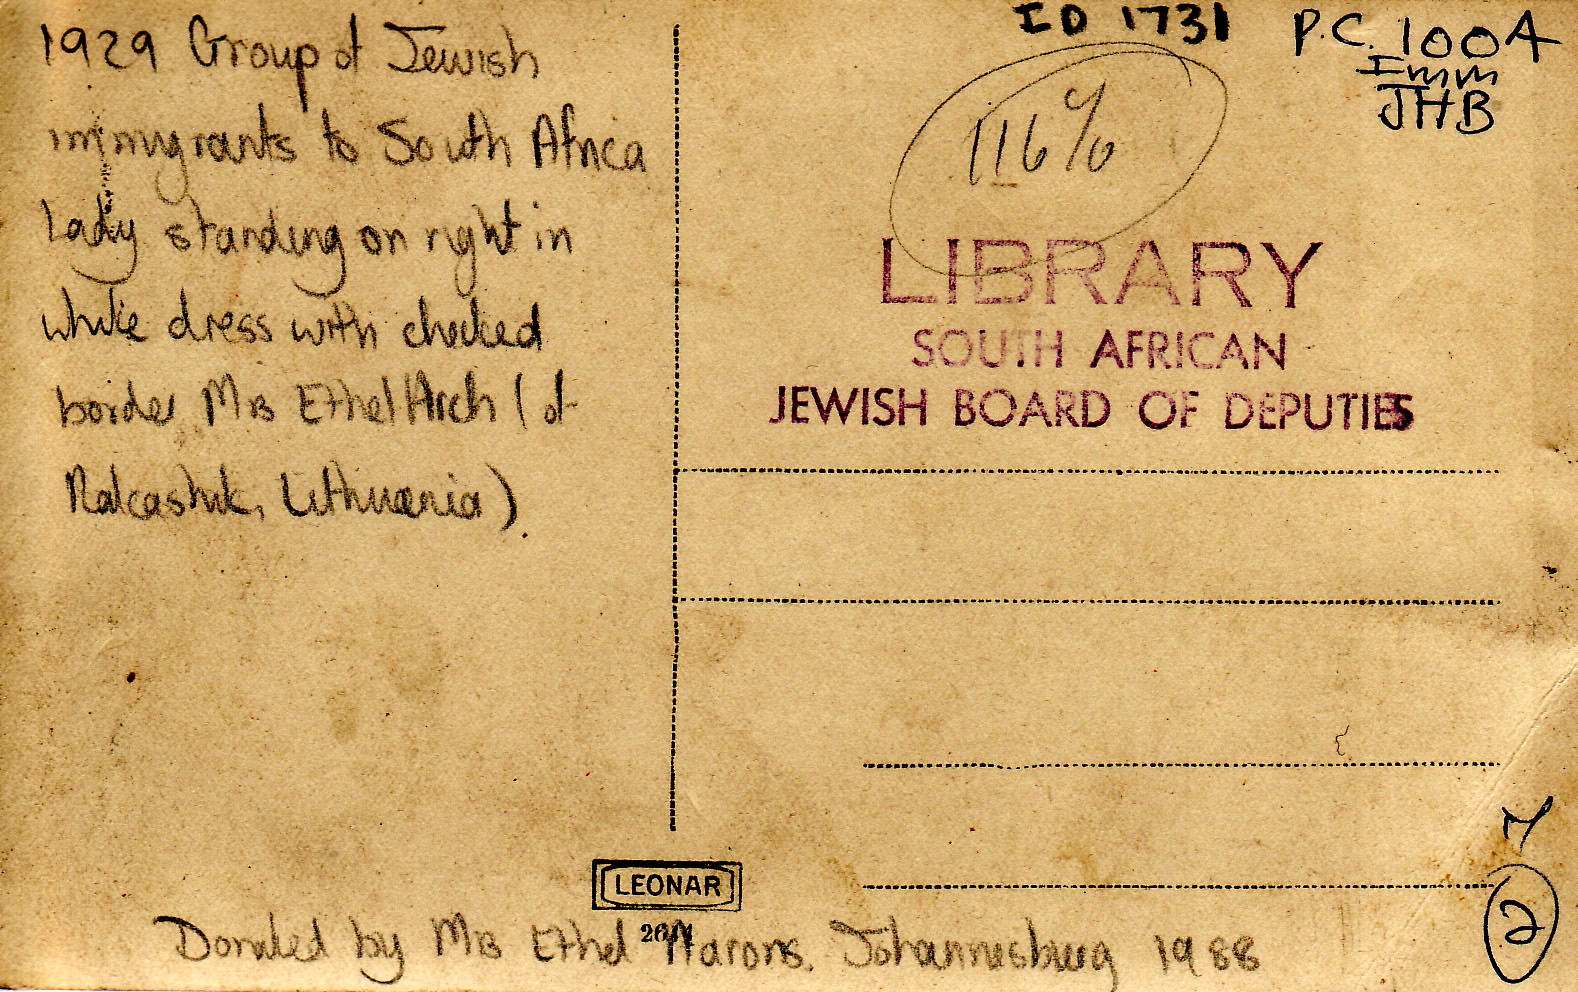 1929 Group of Jewish
immigrants to South Africa
Lady standing on right in
white dress with checked
border Mrs Ethel Arch (of
Lithuania).
ID 1731
P.C. 100A
Imm
JHB
116%
LIBRARY
SOUTH AFRICAN
JEWISH BOARD OF DEPUTIES
LEONAR
Donated by Mrs Ethel Aarons. Johannesburg 1988
2